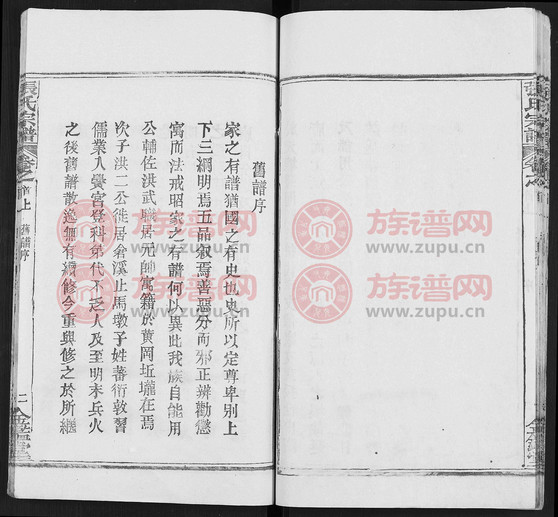 舊譜序
家之有譜猶國之有史也史所以定尊卑別上
下三綱明焉五品叙焉善惡分而邪正辨勸懲
寓而法戒昭家之有譜何以異此我族自能用
公輔佐洪武職居元帥寓籍於黄岡坵壠在焉
次子洪二公徙居倉溪止馬墩子姓蕃衍敦習
儒業入黌宮登科第代不乏人及至明末兵火
之後舊譜散逸無有續修今重興修之於所繼
張氏宗譜
卷之首上
舊譜序
二
張氏宗譜
卷之
族谱网
www.zupu.cn
族谱网
www.zupu.cn
族谱网
www.zupu.cn
族谱网
www.zupu.cn